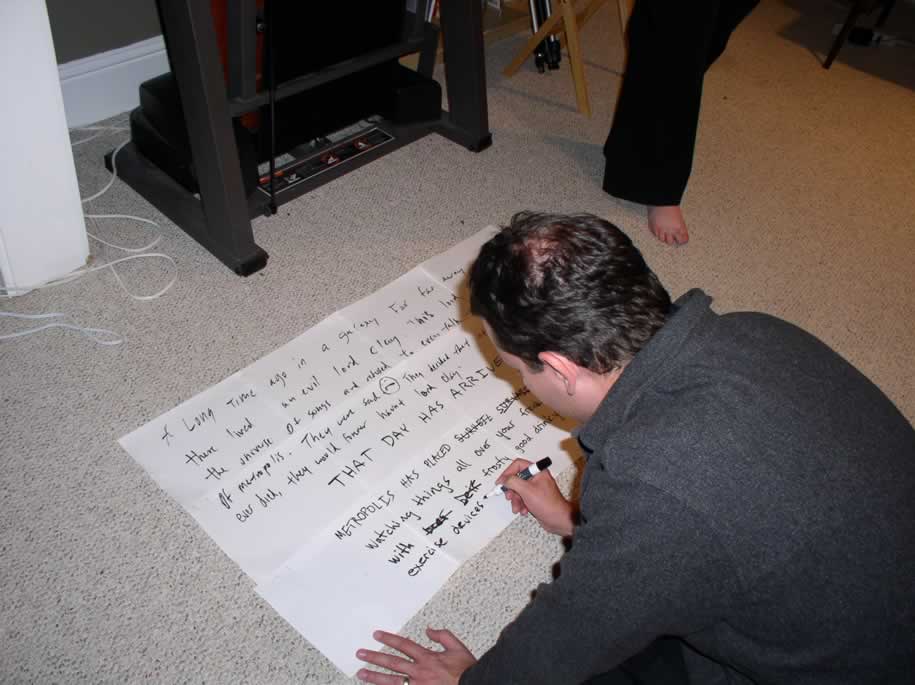 A Long Time ago in a galaxy Far far away
there lived an evil lord Clay. This lord
the universe of songs and refused to ever talk
of metropolis. They were sad :( They decided that
ever died, they would forever haunt lord Clay.
THAT DAY HAS ARRIVE
METROPOLIS HAS PLACED STRATEGIC
watching things all over your
with frosty good drink
exercise devices